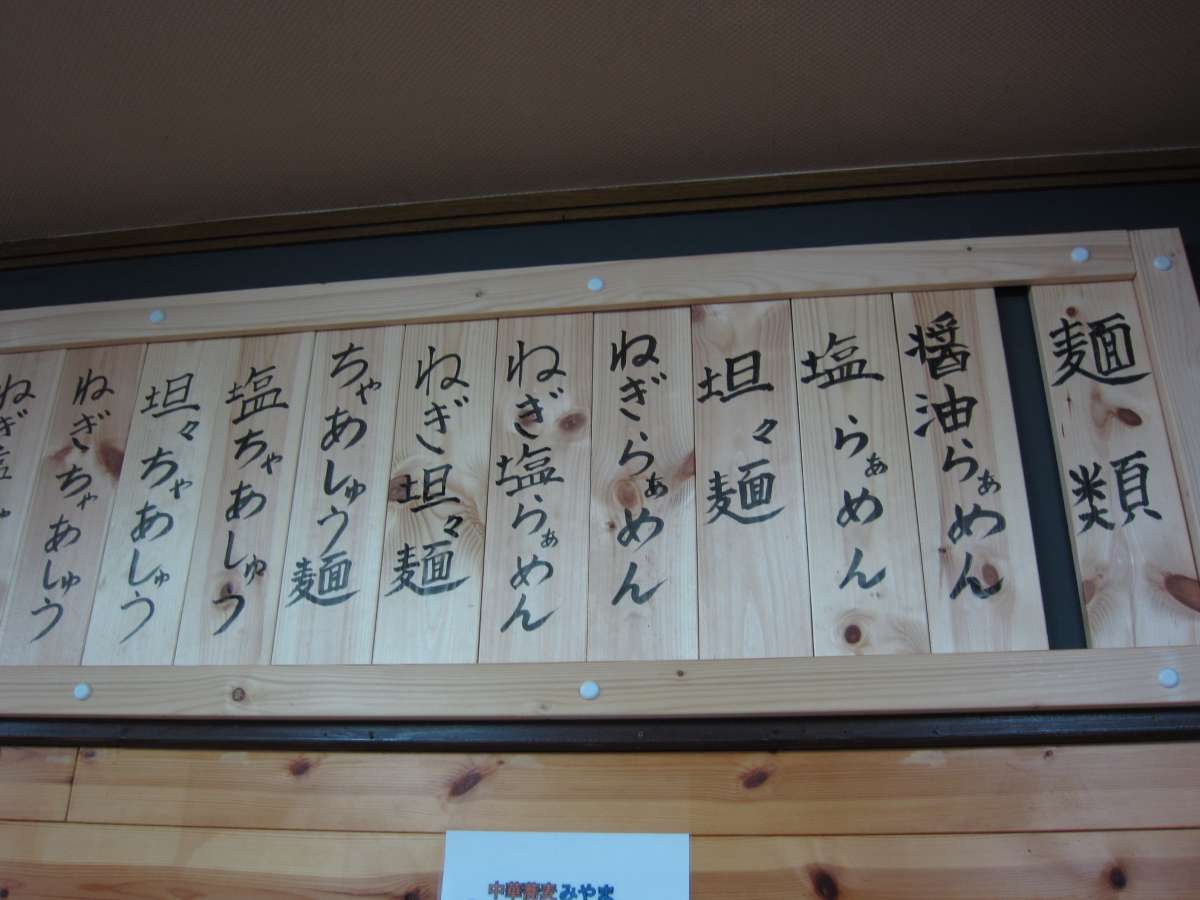 麺類
醤油らぁめん
塩らぁめん
坦々麺
ねぎらぁめん
ねぎ塩らぁめん
ねぎ坦々麺
ちゃあしゅう麺
塩ちゃあしゅう
坦々ちゃあしゅう
ねぎちゃあしゅう
ねぎ塩
中華蕎麦みやま